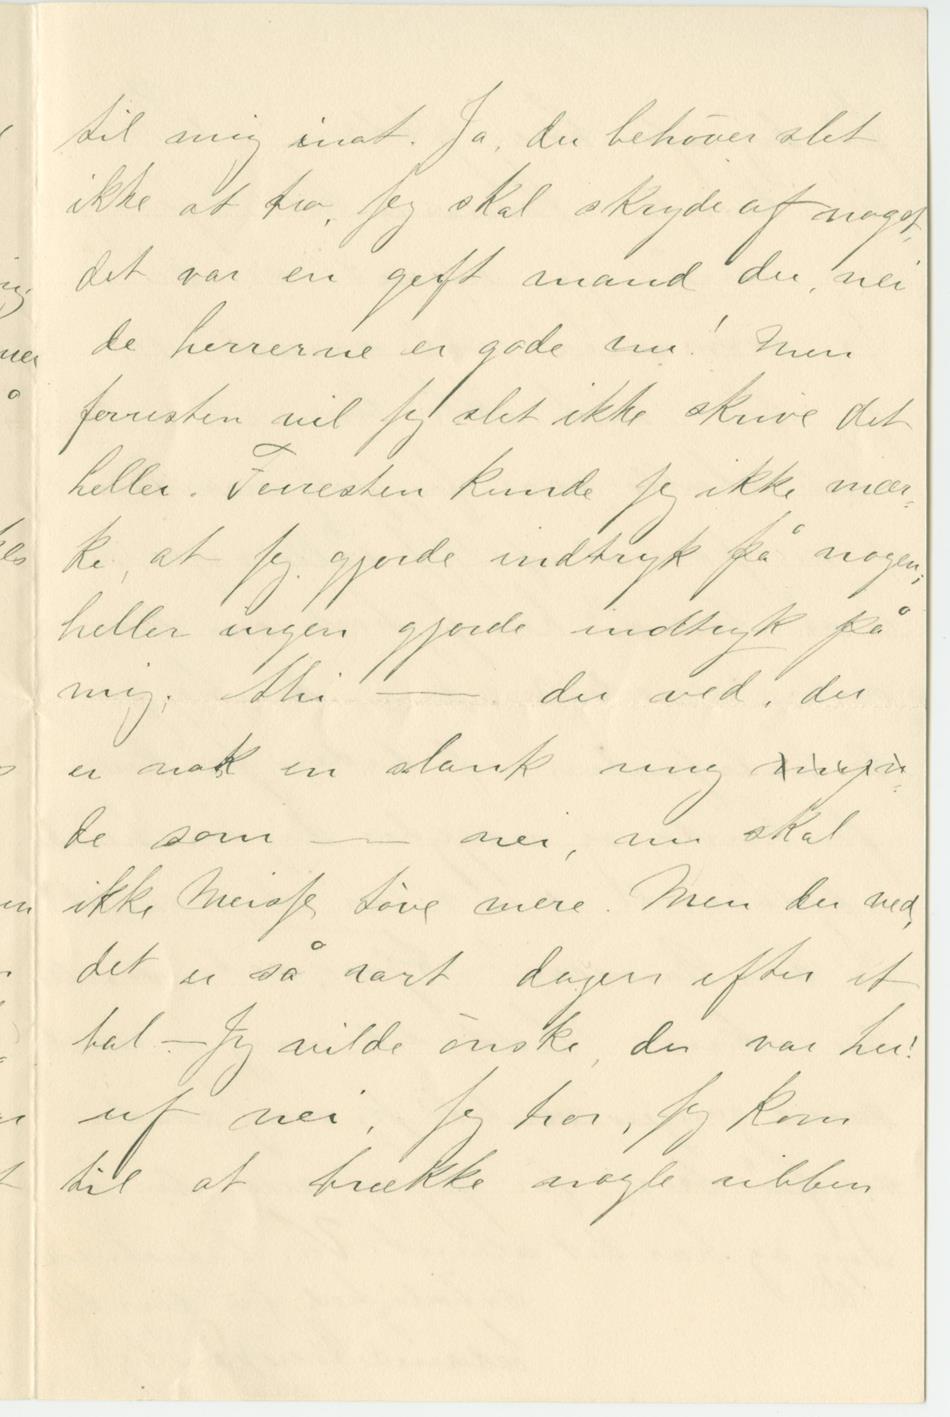 til mig inat. Ja, du behöver slet
ikke at tro, jeg skal skryde af noget,
det var en gift mand du, nei
de herrerne er gode nu! Men
forresten vil jeg slet ikke skrive det
heller. Forresten kunde jeg ikke mær-
ke, at jeg gjorde indtryk på nogen;
heller ingen gjorde indtryk på
mig, thi — du ved, der
er nok en slank ung
de som — nei, nu skal
ikke töve mere. Men du ved,
det er så rart dagen efter et
bal — Jeg vilde önske, du var her!
uf nei, jeg tror, jeg kom
til at brække nogle ribben